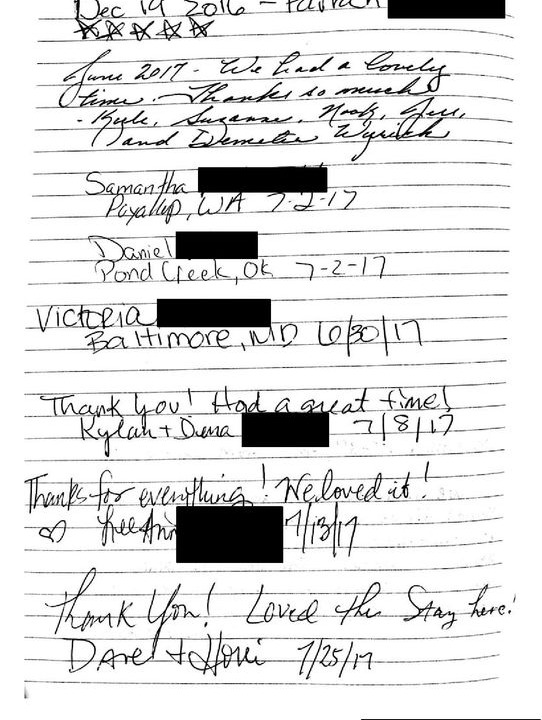 Dec 19 2016 -
June 2017 - We had a lovely
time. Thanks so much
- Kyle, Suzanne, Nook, Jill,
and Demetri Wyrick
Samantha
Puyallup, WA 7-2-17
Daniel
Pond Creek, OK 7-2-17
Victoria
Baltimore, MD 6/30/17
Thank You! Had a great time!
Kylah + Diena 7/8/17
Thanks for everything! We loved it!
♡ LeeAnn 7/13/17
Thank You! Loved the Stay here!
Dave + 7/25/17